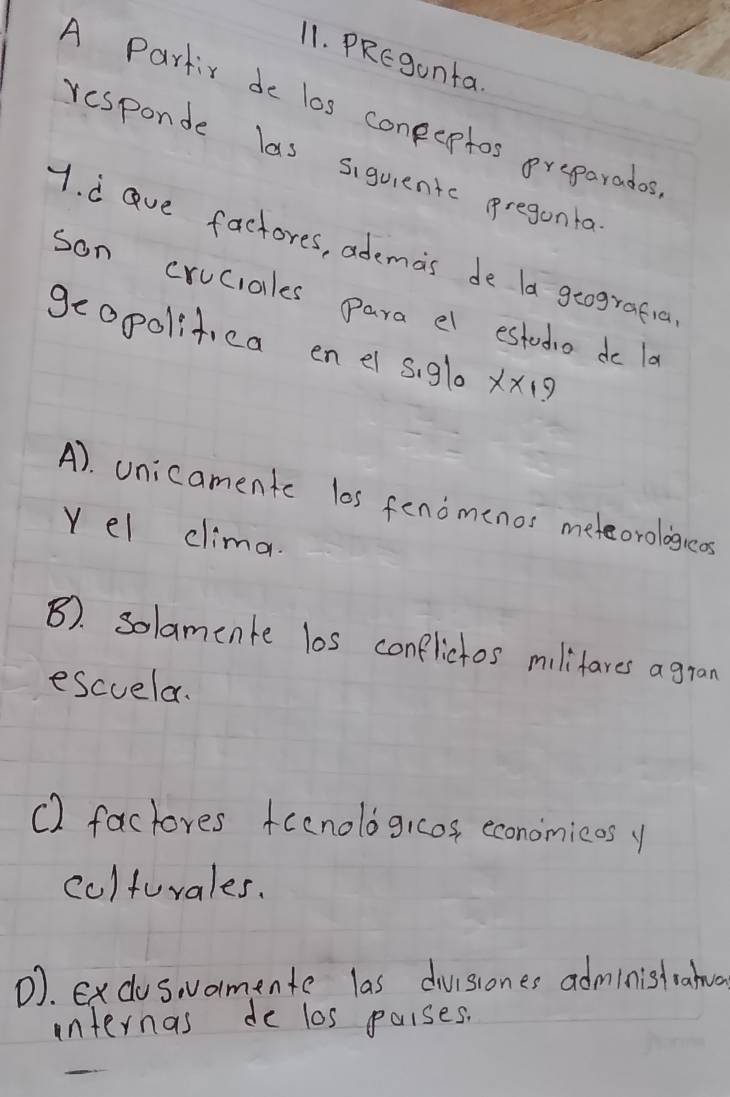 11. PREgunta.
A Partir de los conceptos preparados,
responde las siguiente pregunta.
1. ¿ Que factores, además de la geografia,
son cruciales para el estudio de la
geopolitica en el siglo XXI?
A). unicamente los fenómenos meteorológicos
y el clima.
B). solamente los conflictos militares a gran
escuela.
C) factores tecnológicos económicos y
culturales.
D). Exclusivamente las divisiones administrativas
internas de los paises.